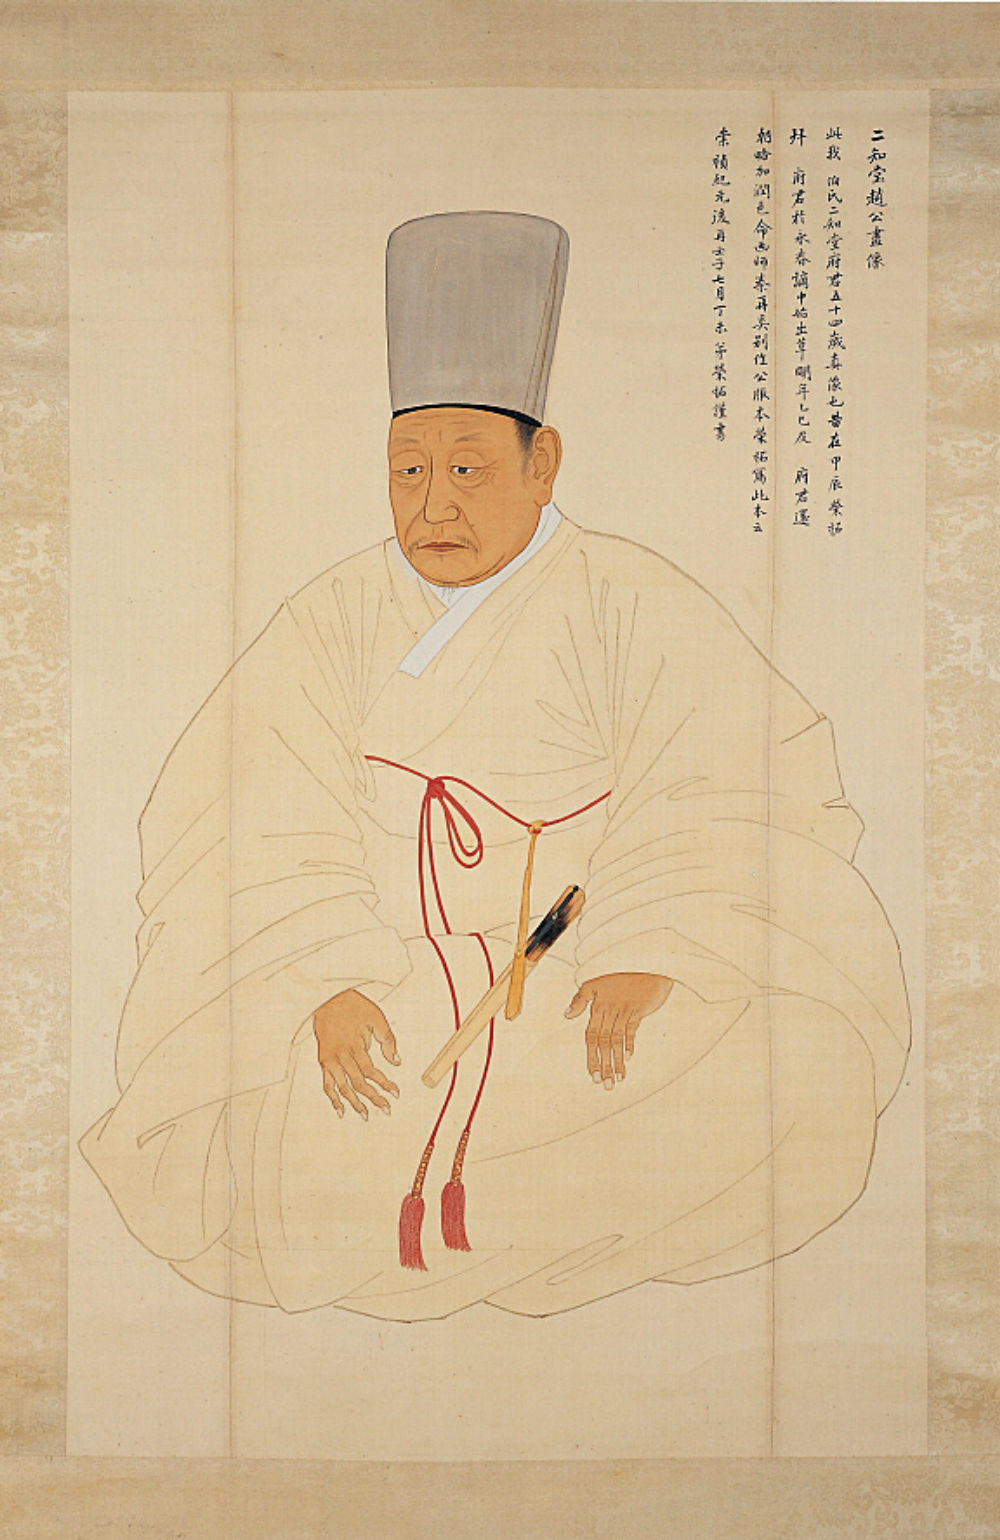 二知堂趙公畫像
此我 伯氏二知堂府君五十四歲眞像也昔在甲辰榮祏
拜 府君於永春謫中始出草明年乙巳反 府君還
朝略加潤色命畫師秦再奚別作公服本榮祏寫此本云
崇禎紀元後再壬子七月丁未弟榮祏謹書